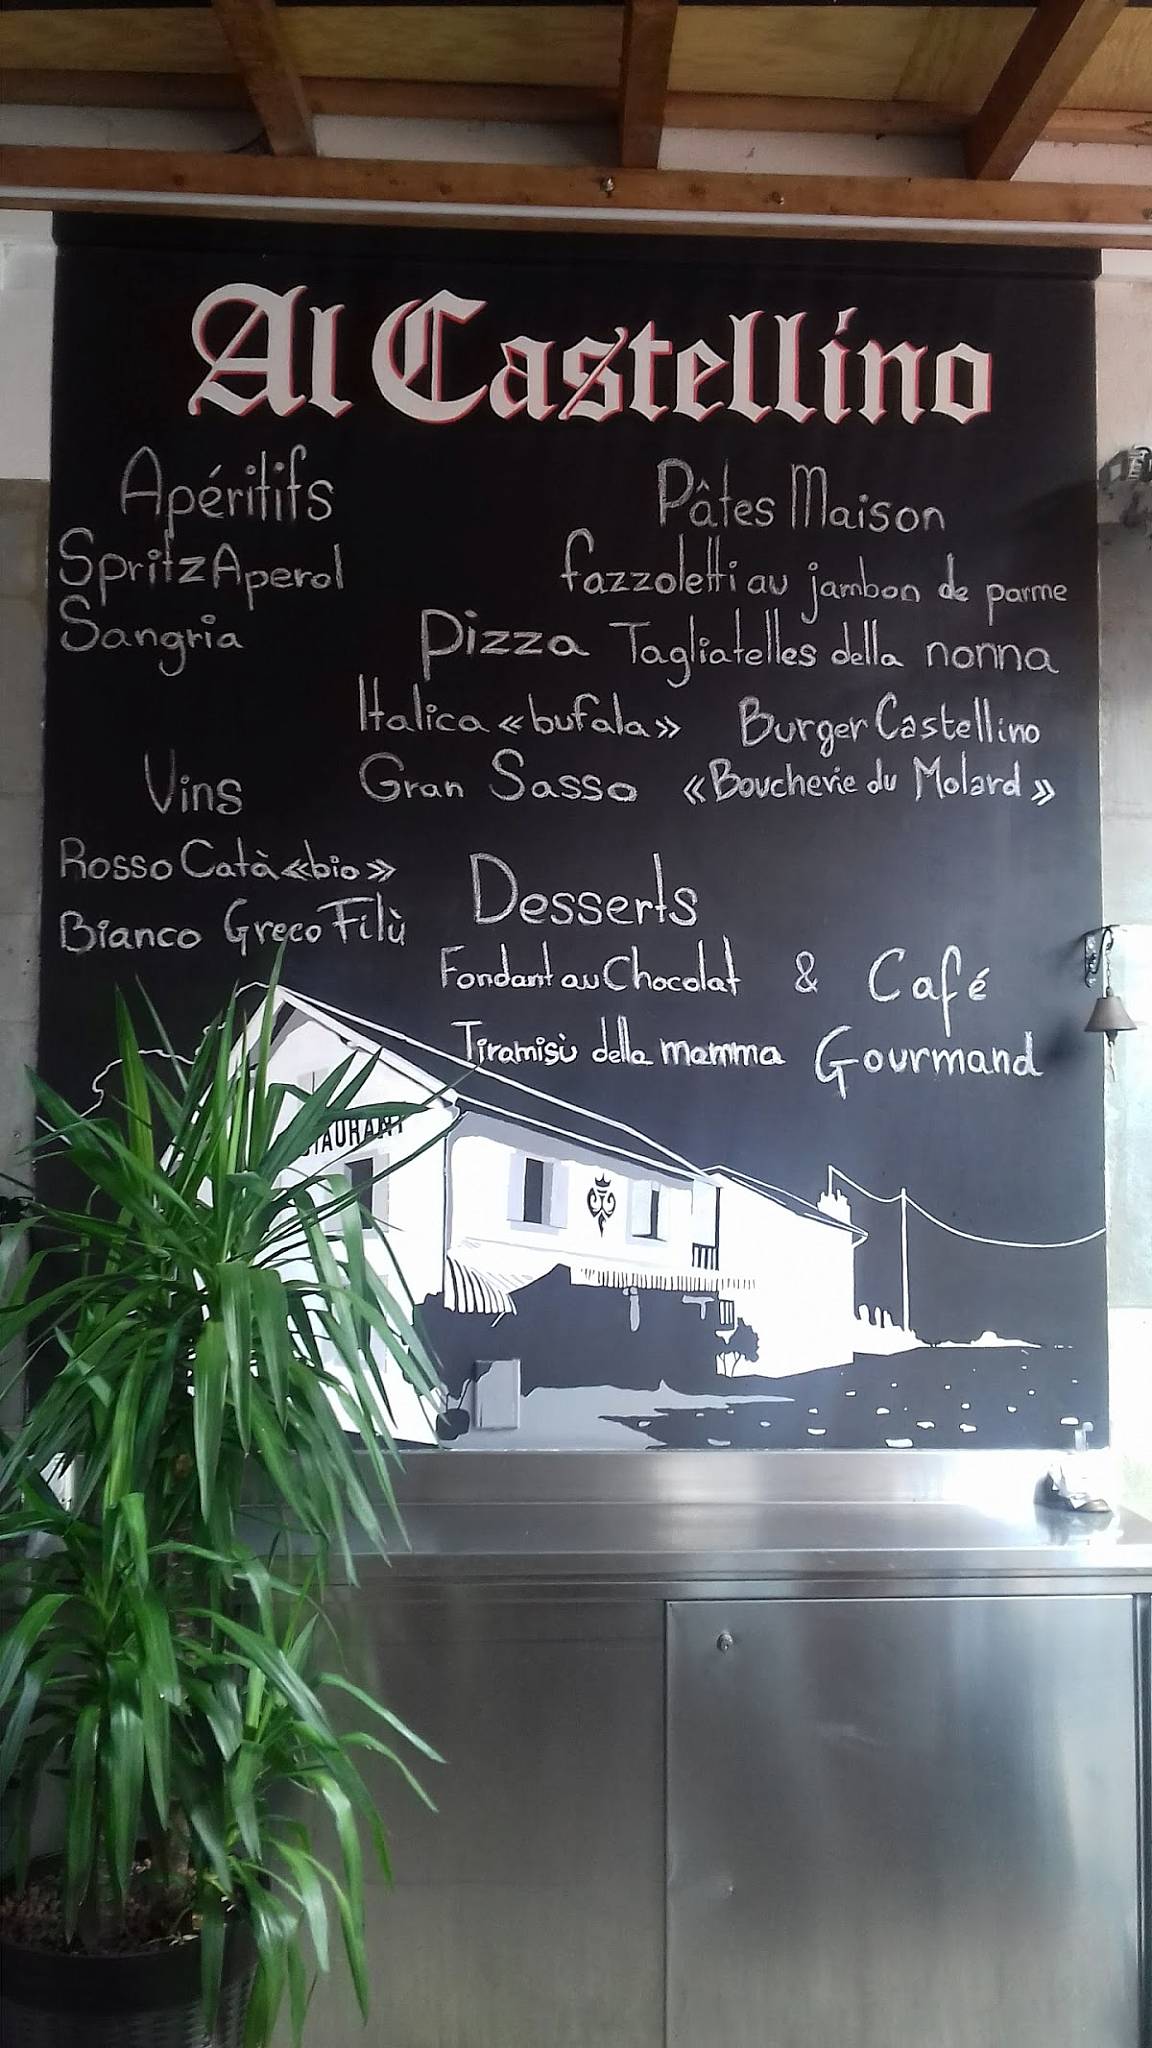 Al Castellino
Apéritifs
Spritz Aperol
Sangria
Vins
Rosso Catà «bio»
Bianco Greco Filù
Pizza
Italica «bufala»
Gran Sasso
Pâtes Maison
fazzoletti au jambon de parme
Tagliatelles della nonna
Burger Castellino
«Boucherie du Molard»
Desserts
Fondant au Chocolat & Café
Tiramisù della mamma Gourmand